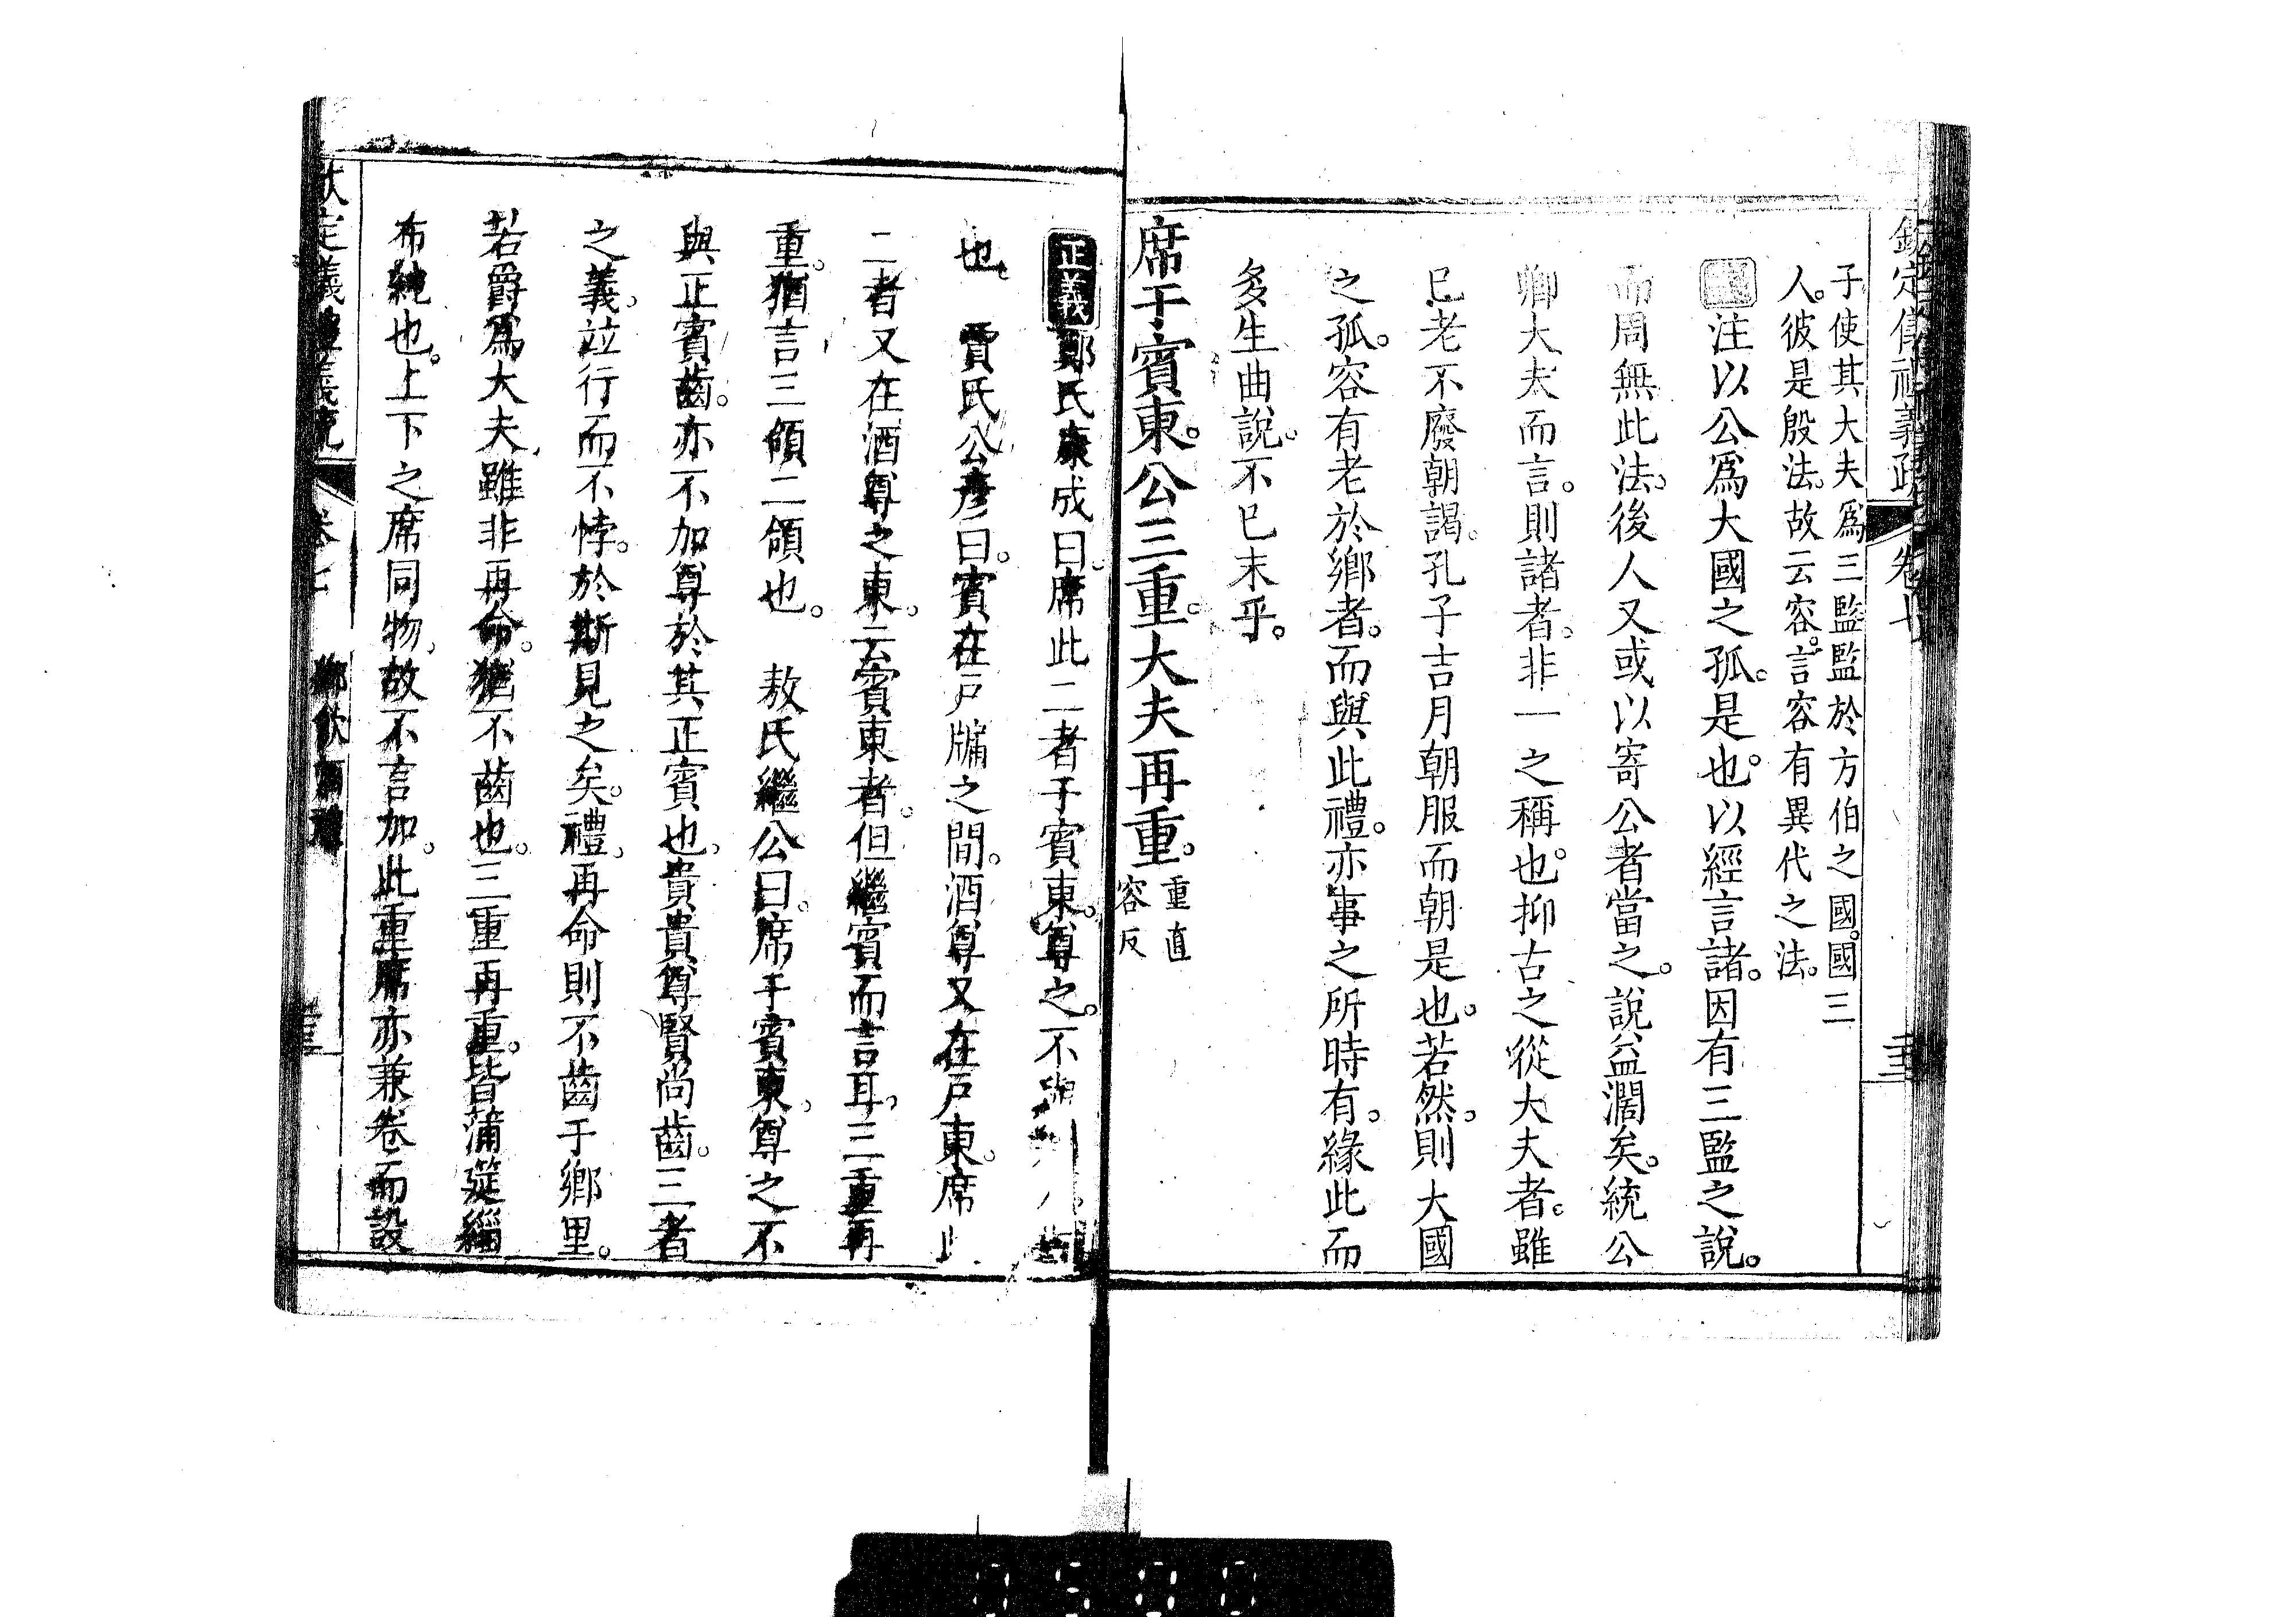 欽定儀禮義疏 卷七
子使其大夫爲三監監於方伯之國。國三
人。彼是殷法。故云容。言容有異代之法。
注以公爲大國之孤。是也。以經言諸。因有三監之說。
而周無此法。後人又或以寄公者當之。說益濶矣。統公
卿大夫而言。則諸者。非一之稱也。抑古之從大夫者。雖
已老不廢朝謁。孔子吉月朝服而朝是也。若然。則大國
之孤。容有老於鄉者。而與此禮。亦事之所時有。緣此而
多生曲說。不已末乎。
席于賓東。公三重。大夫再重。重直
容反
正義鄭氏康成曰。席此二者于賓東。尊之。不
也 賈氏公彥曰。賓在戶牖之間。酒尊又在戶東。席此
二者又在酒尊之東。云賓東者。但繼賓而言耳。三重再
重。猶言三領二領也。 敖氏繼公曰。席于賓東。尊之不
與正賓齒。亦不加尊於其正賓也。貴貴尊賢尚齒。三者
之義。竝行而不悖。於斯見之矣。禮。再命則不齒于鄉里。
若爵爲大夫。雖非再命。猶不齒也。三重再重。皆蒲筵緇
布純也。上下之席同物。故不言加。此重席亦兼卷而設
欽定儀禮義疏 卷七 鄉飲酒禮